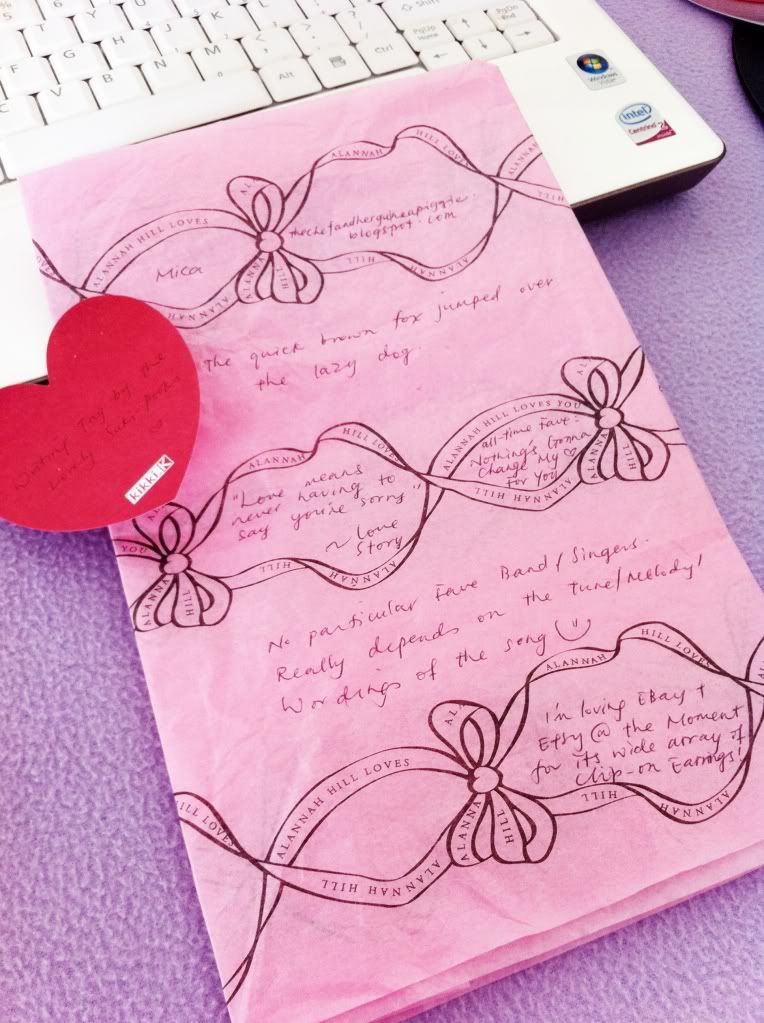 Shift
PgUp
Home
PgDn
End
Alt
Ctrl
Windows
intel
Centrino
ALANNAH HILL LOVES
ALANNAH HILL
Mica
thechefandherguineapiggie.
blogspot.com
The quick brown fox jumped over
the lazy dog.
Writing Tag by the
lovely
kikki.K
ALANNAH HILL LOVES YOU
ALANNAH HILL
All-time Fave:
Nothing's Gonna
Change My
For You
"Love means
never having to
say you're sorry"
~ Love
Story
No particular Fave Band/Singers.
Really depends on the tune/Melody/
Wordings of the song
ALANNAH HILL LOVES
ALANNAH HILL
I'm loving EBay +
Etsy @ the Moment
for its wide array of
clip-on Earrings!